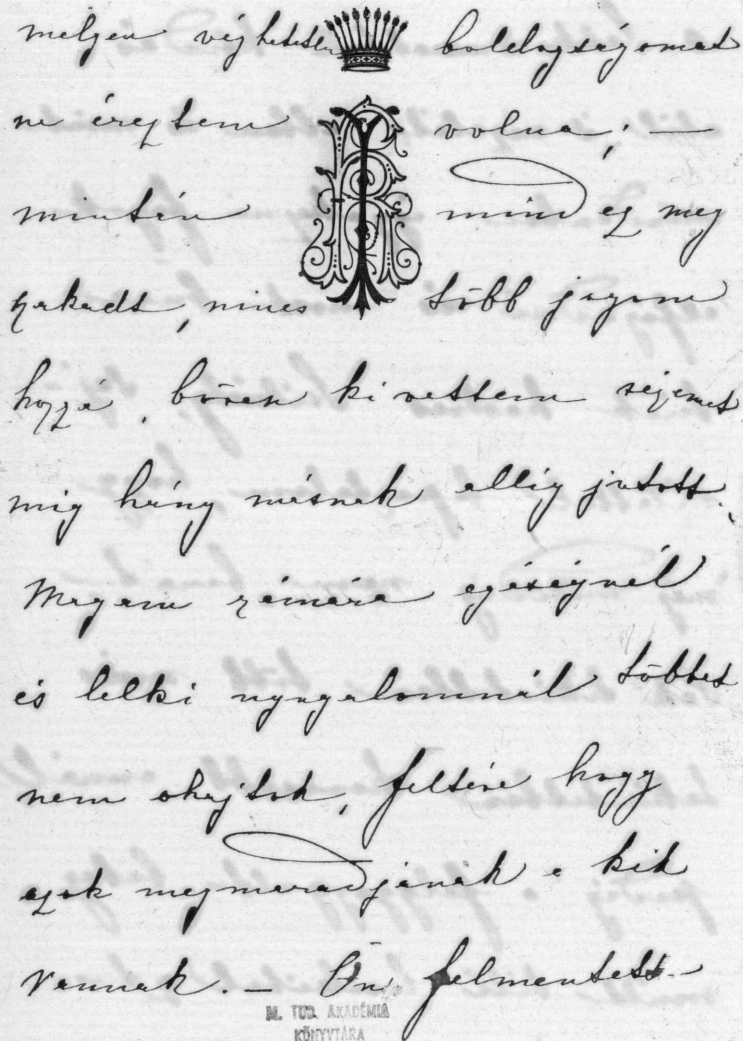 mélyen véghetetlen boldogságomat
ne éreztem volna; —
mintán mind ez meg
szakadt, nincs több jogom
hozzá, bőven ki vettem részemet
mig hány másnak allig jutott.
Magam számára egéségnél
és lelki nyugalomnál többet
nem ohajtok, feltéve hogy
azok megmaradjanak a kik
vannak. — Ön felmentett
M. TUD. AKADÉMIA
KÖNYVTÁRA